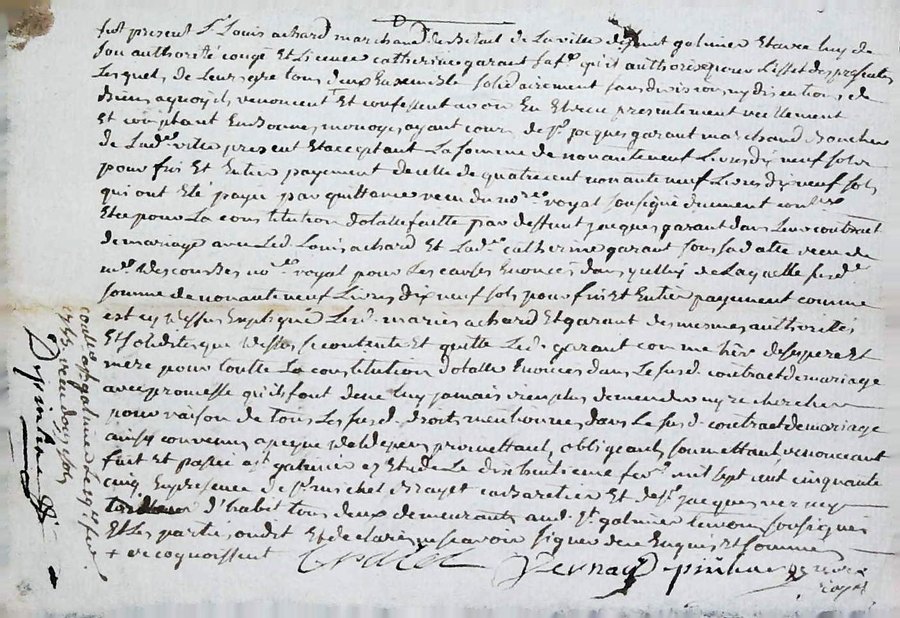 fut present Sr Louis achard marchand de la ville de saint galmier et avec luy de
son authorité congé Et licence catherine garant sa fe qu'il authorise pour l'effet des presentes
Lesquels de Leur gre tous deux Ensemble solidairement sans division ny discution de
biens aquoy ils renoncent Et confessent avoir Eu Et receu presentement reellement
Et comptant En bonne monoye ayant cour de Sr jacques garant marchand Boucher
de Ladte ville present Et acceptant La somme de nonante neuf Livres dix neuf sols
pour fin et Entier payement de celle de quatre cent nonante neuf Livres dix neuf sols
qui ont Eté payée par quittance receu du nore royal soussigné
Etce pour La constitution dotalle faitte par deffunt jacques garant dans Leur contract
de mariage avec Led. Louis achard Et Ladte catherine garant receu de
me Descombes nore royal pour Les causes Enoncés dans yceluy de Laquelle susde
somme de nonante neuf Livres dix neuf sols pour fin Et Entier payement comme
est cy dessus Expliqué Lesd. mariés achard Et garant des mesmes authorités
Et solidité que dessus se contente Et quitte Led. garant comme hér de ses pere Et
mere pour toutte La constitution dotalle Enoncés dans Le susd. contract de mariage
avec promesse qu'ils font de ne Luy jamais rien plus demender ny rechercher
pour raison de tous Les susd. droits mentionnes dans Le susd. contract de mariage
ainsy convenus a peyne de depens promettant, obligeant, soumettant, renonceant
fait et passé a St galmier Etude Le dix huitieme fer mil sept cent cinquante
cinq En presence de Sr michel Brayet cabaretier Et de Sr jacques verney
d'habit tous deux demeurants aud. St galmier temoins soussignes
Et Les parties ondit Et declaré ne scavoir signer de ce Enquis Et sommes
+ recognoissent
Vernay
royal
conllé a St galmier le
receu douze sols